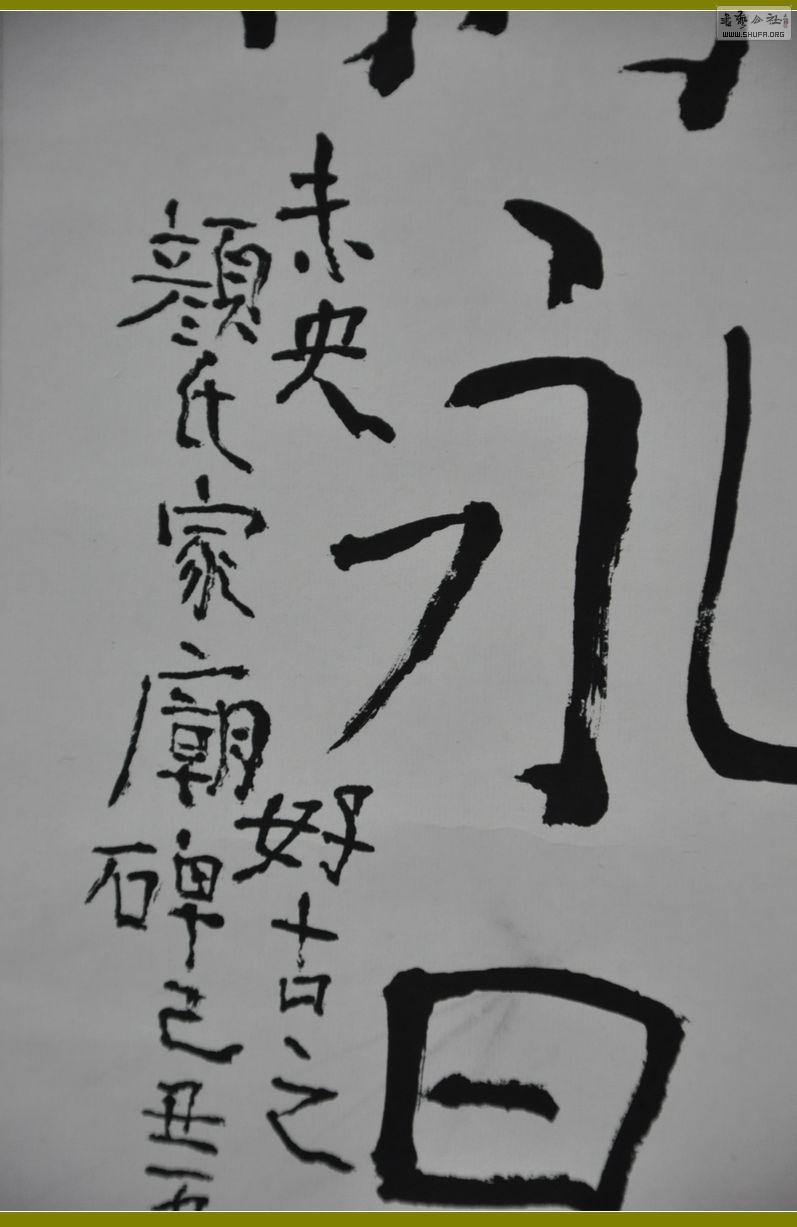 永日
未央 好古之
顏氏家廟碑己丑
書藝公社
WWW.SHUFA.ORG